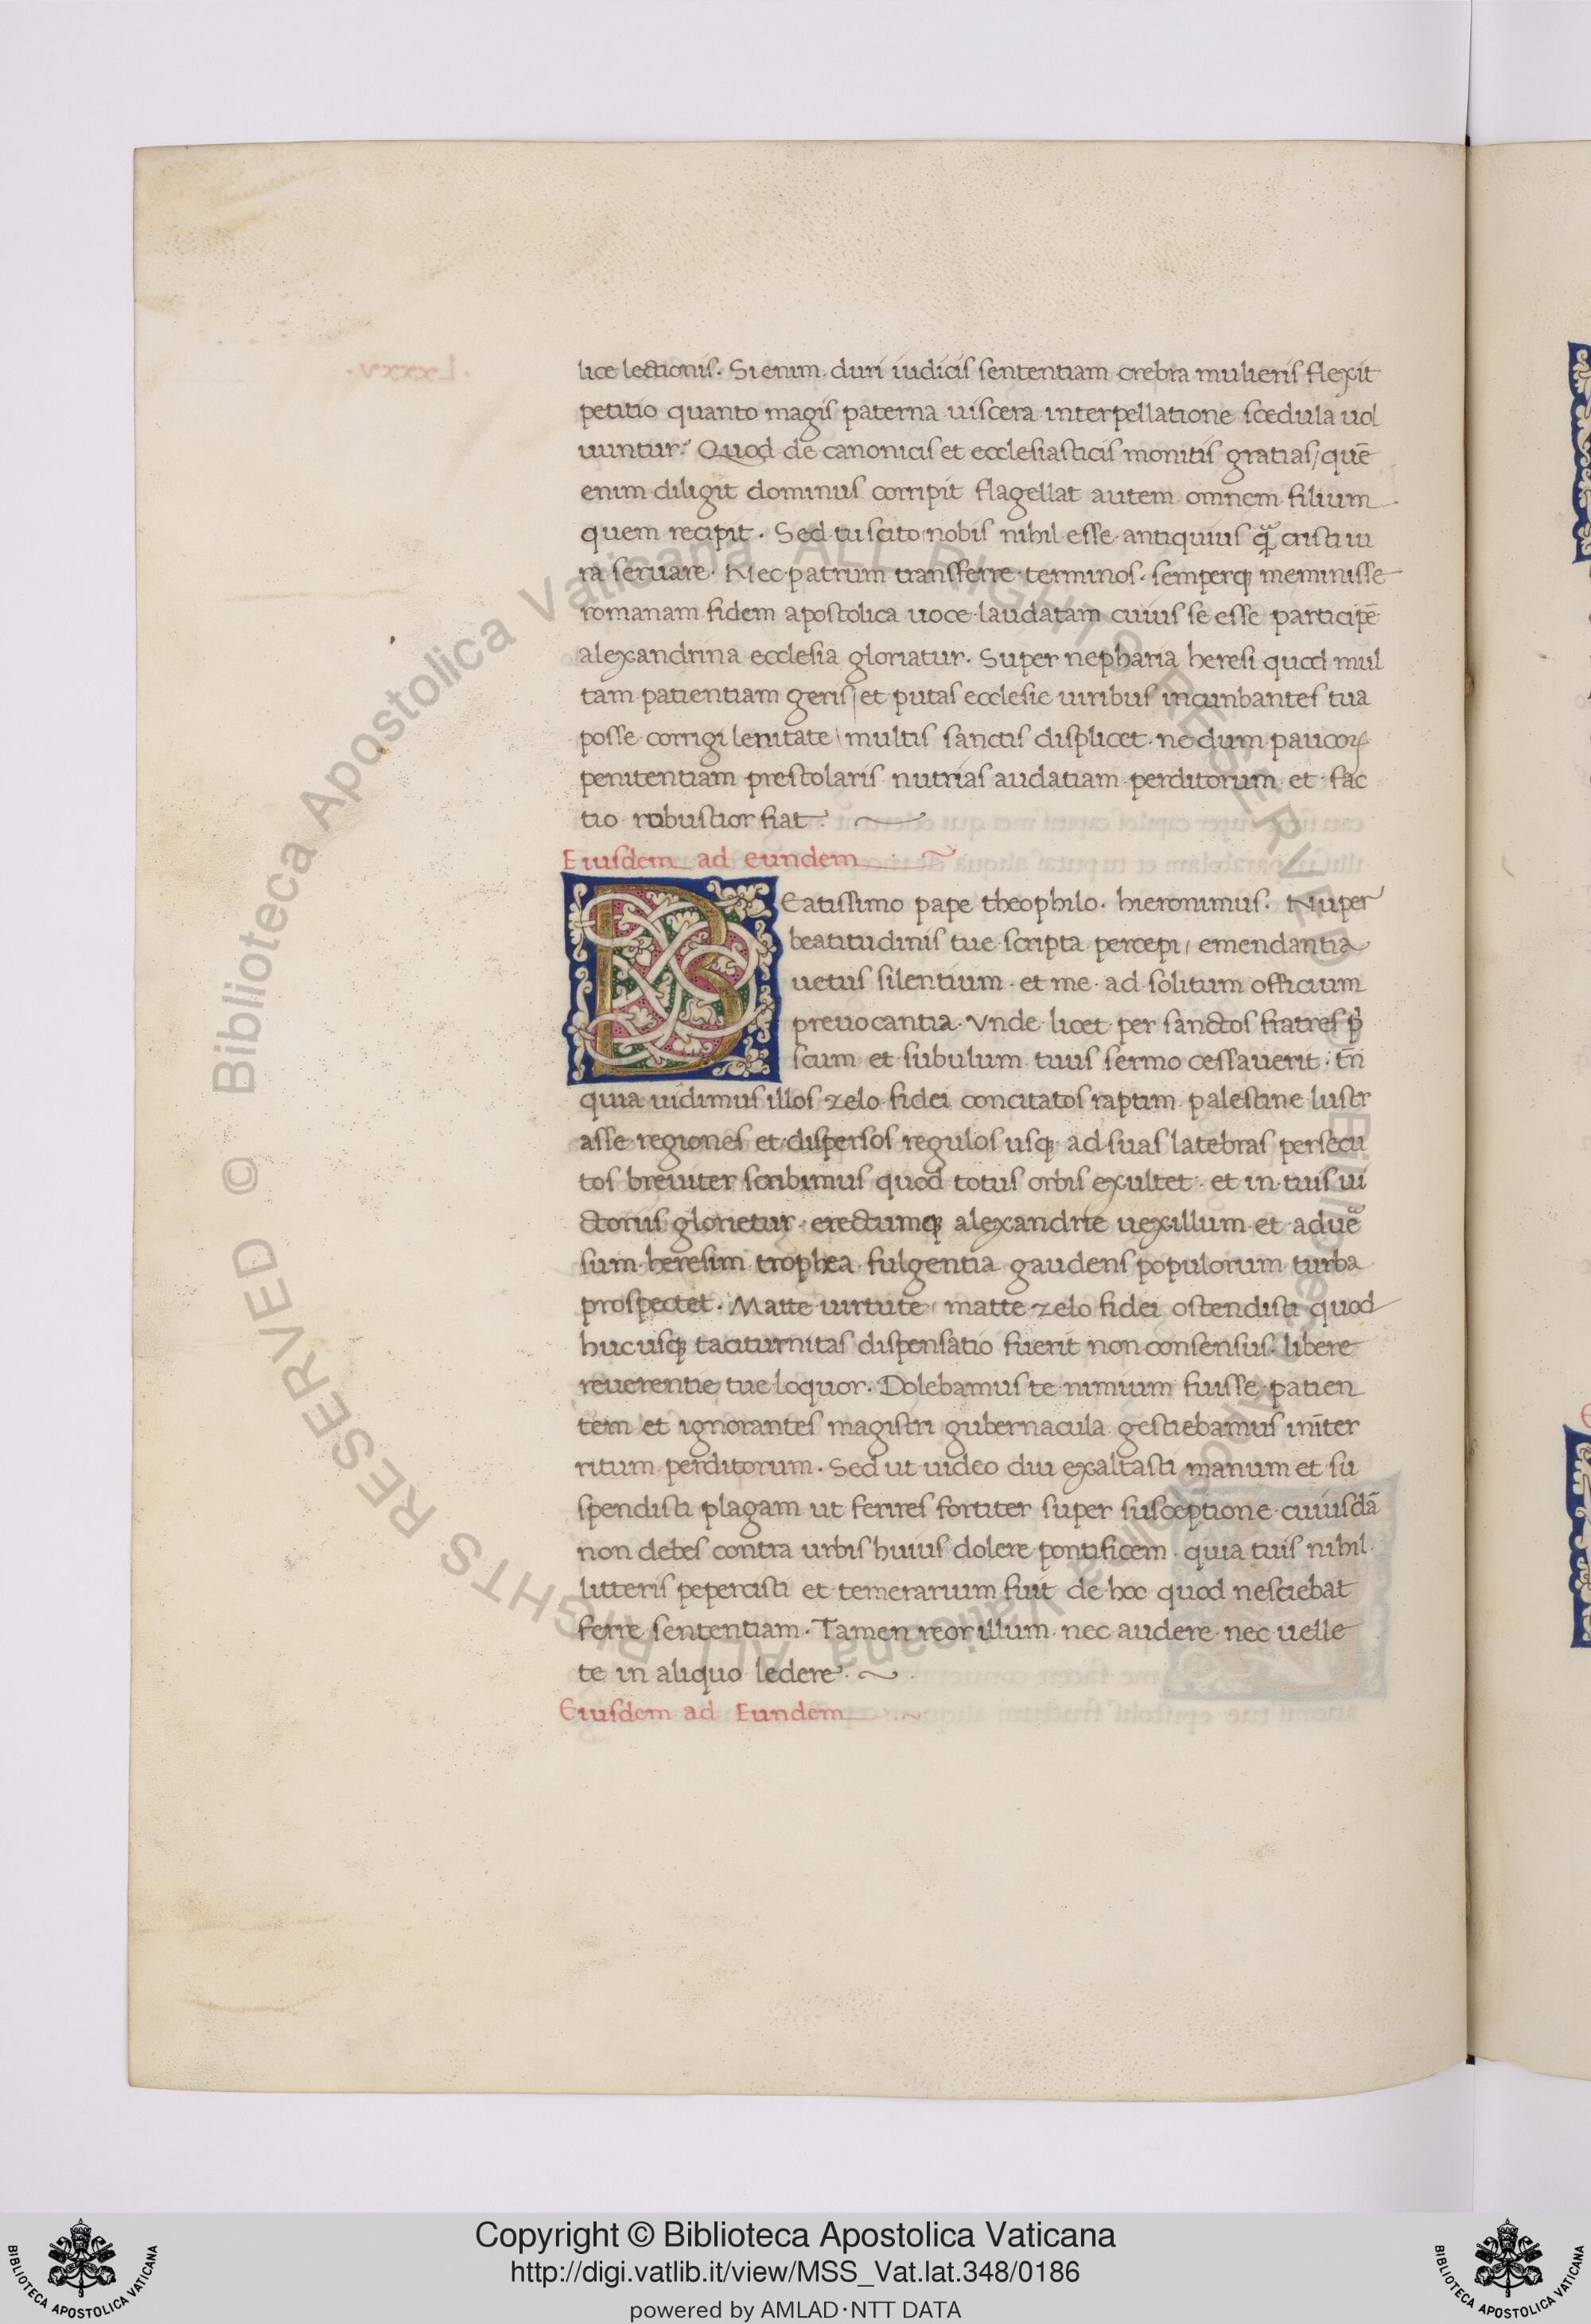 lice lectionis. Si enim duri iudicis sententiam crebra mulieris flexit
petitio quanto magis paterna uiscera interpellatione scedula uol
uuntur. Quod de canonicis et ecclesiasticis monitis gratias, quē
enim diligit dominus corripit flagellat autem omnem filium
quem recipit. Sed tu scito nobis nihil esse antiquius q̄ cristi iu
ra seruare. Nec patrum transferre terminos. semperq; meminisse
romanam fidem apostolica uoce laudatam cuius se esse participē
alexandrina ecclesia gloriatur. Super nepharia heresi quod mul
tam patientiam geris, et putas ecclesie uiribus incunbantes tua
posse corrigi lenitate multis sanctis displicet. ne dum paucoꝝ
penitentiam prestolaris nutrias audatiam perditorum et fac
tio robustior fiat.
Eiusdem ad eundem
Beatissimo pape theophilo. hieronimus. Nuper
beatitudinis tue scripta percepi, emendantia
uetus silentium. et me ad solitum officium
preuocantia. Vnde licet per sanctos fratres p̓
scum et subulum tuus sermo cessauerit. tn̄
quia uidimus illos zelo fidei concitatos raptim palestine lustr
asse regiones et dispersos regulos usq; ad suas latebras persecu
tos breuiter scribimus quod totus orbis exultet. et in tuis ui
ctoriis glorietur. erectumq; alexandrie uexillum et aduē
sum heresim trophea fulgentia gaudens populorum turba
prospectet. Matte uirtute, matte zelo fidei ostendisti quod
hucusq; taciturnitas dispensatio fuerit non consensus. libere
reuerentie tue loquor. Dolebamus te nimium fuisse patien
tem et ignorantes magistri gubernacula gestiebamus in īter
ritum perditorum. Sed ut uideo diu exaltasti manum et su
spendisti plagam ut ferires fortiter super susceptione cuiusdā
non debes contra urbis huius dolere pontificem. quia tuis nihil
litteris pepercisti et temerarium fuit de hoc quod nesciebat
ferre sententiam. Tamen reor illum nec audere nec uelle
te in aliquo ledere.
Eiusdem ad Eundem
Biblioteca Apostolica Vaticana ALL RIGHTS RESERVED ©
Copyright © Biblioteca Apostolica Vaticana
http://digi.vatlib.it/view/MSS_Vat.lat.348/0186
powered by AMLAD·NTT DATA
BIBLIOTECA APOSTOLICA VATICANA
BIBLIOTECA APOSTOLICA VATICANA